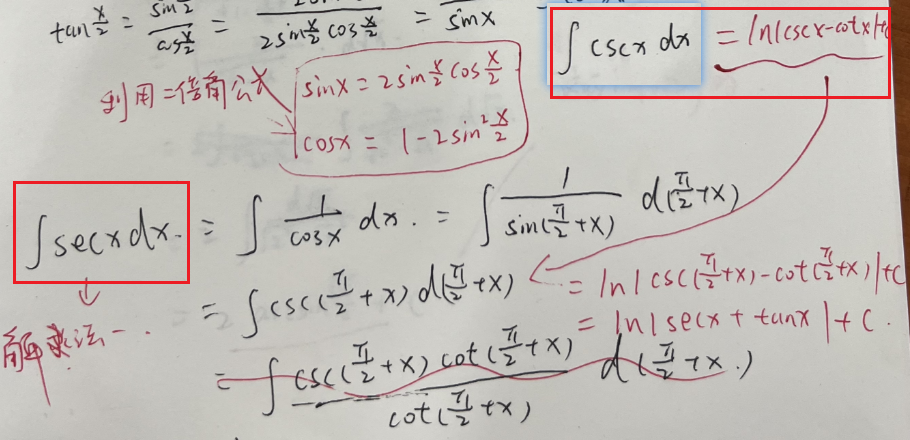 tan x/2 = sin x/2 / cos x/2 = / 2sin x/2 cos x/2 = / sinx
∫ cscx dx = ln|cscx-cotx|+c
利用二倍角公式
sinx = 2sin x/2 cos x/2
cosx = 1-2sin² x/2
∫secxdx. = ∫ 1/cosx dx. = ∫ 1/sin(π/2+x) d(π/2+x)
= ∫csc(π/2+x) d(π/2+x) = ln|csc(π/2+x)-cot(π/2+x)|+c
= ln|secx + tanx|+c.
解法一..
= ∫ csc(π/2+x) cot(π/2+x) / cot(π/2+x) d(π/2+x.)